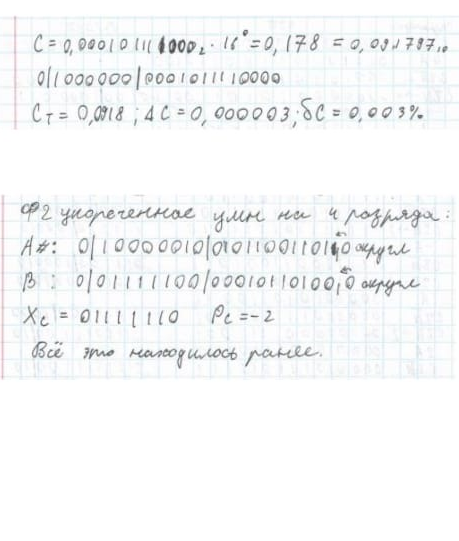 C = 0,000101111000₂ · 16⁰ = 0,178 = 0,091797₁₀
0|1000000|0001011110000
Cт = 0,0918 ; ΔC = 0,000003 ; δC = 0,003%
Ф2 ускоренное умн на 4 разряда:
A*: 0|10000010|010110011010 округл
B : 0|01111100|000101101000,0 округл
Xc = 01111110 Pc = -2
Всё это находилось ранее.